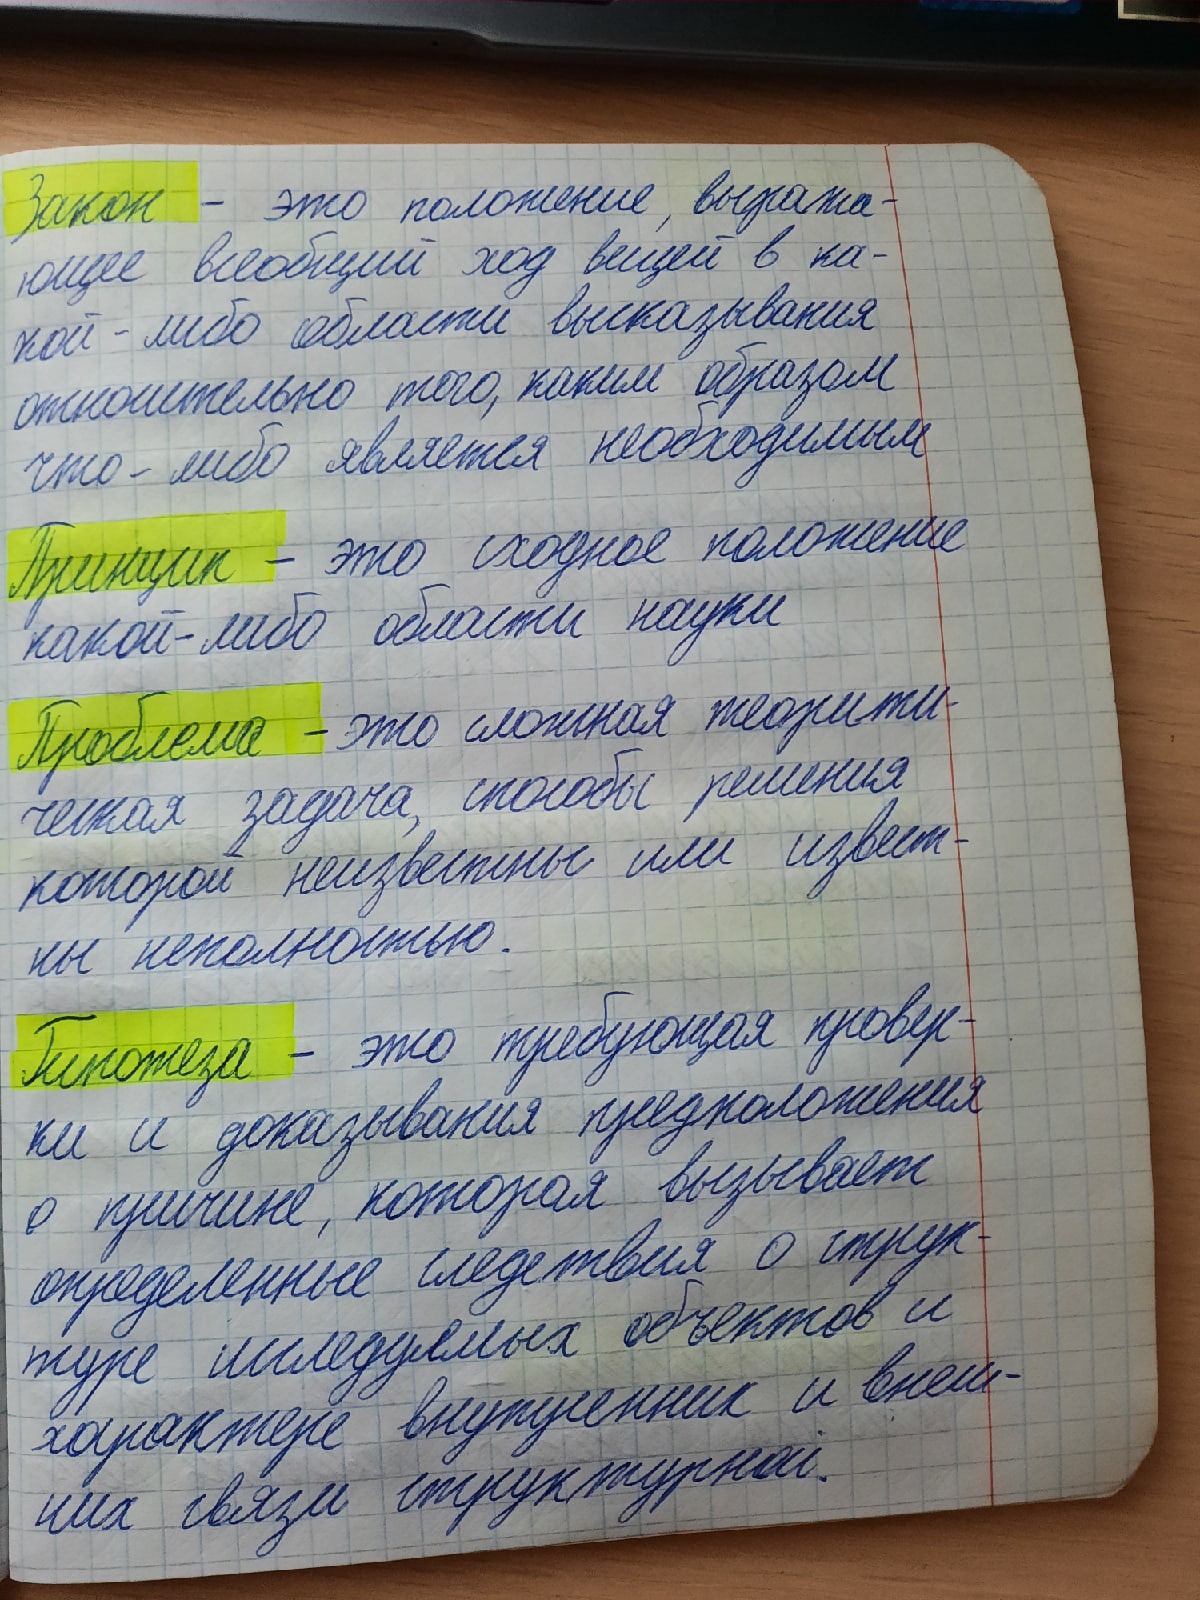 Закон - это положение, выража-
ющее всеобщий ход вещей в ка-
кой-либо области высказывания
относительно того, каким образом
что-либо является необходимым
Принцип - это сходное положение
какой-либо области науки
Проблема - это сложная теорити-
ческая задача, способы решения
которой неизвестны или извест-
ны неполностью.
Гипотеза - это требующая провер-
ки и доказывания предположения
о причине, которая вызывает
определенные следствия о струк-
туре исследуемых объектов и
характере внутренник и внеш-
них связи структурной.